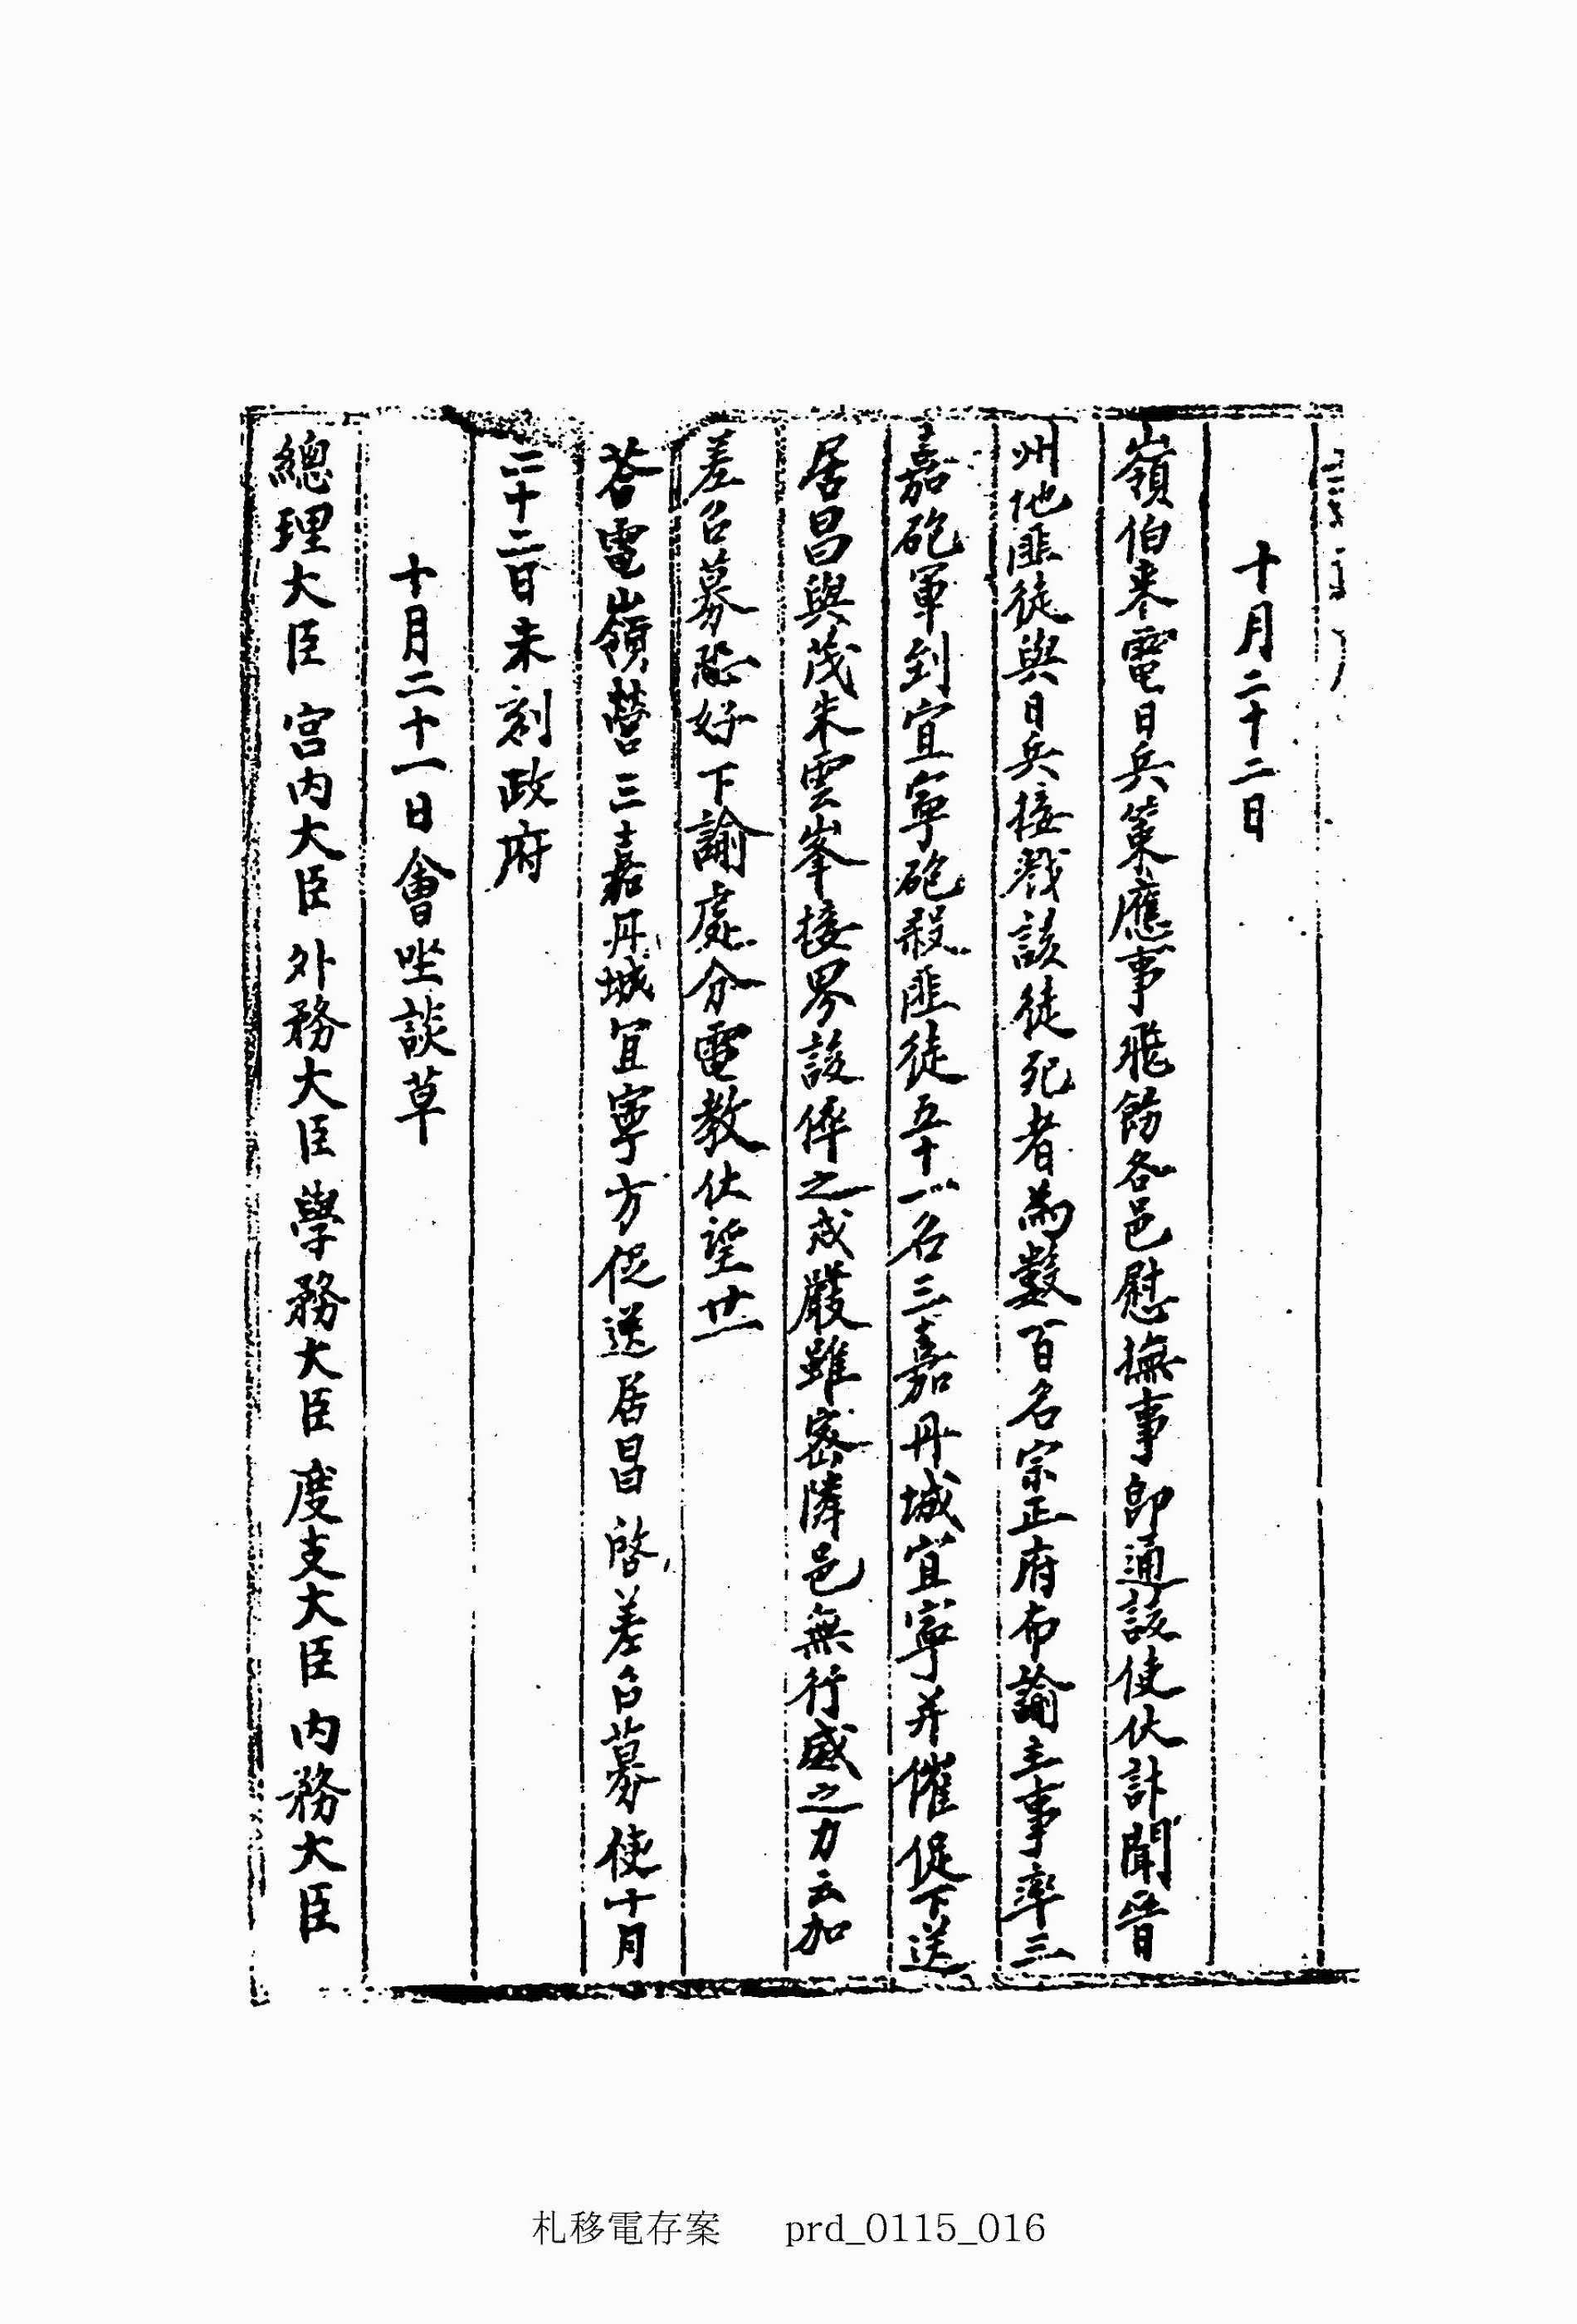 十月二十二日
嶺伯來電日兵策應事飛飭各邑慰撫事卽通該使伏計聞晉
州地匪徒與日兵接戰該徒死者爲數百名宗正府布諭主事率三
嘉砲軍到宜寧砲殺匪徒五十一名三嘉丹城宜寧幷催促下送
居昌與茂朱雲峯接界該倅之戒嚴雖密隣邑無行威之力云加
差召募恐好下諭處分電教伏望廿一
答電嶺營三嘉丹城宜寧方促送居昌啓差召募使十月
二十二日未刻政府
十月二十一日會坐談草
總理大臣 宮內大臣 外務大臣 學務大臣 度支大臣 內務大臣
札移電存案 prd_0115_016